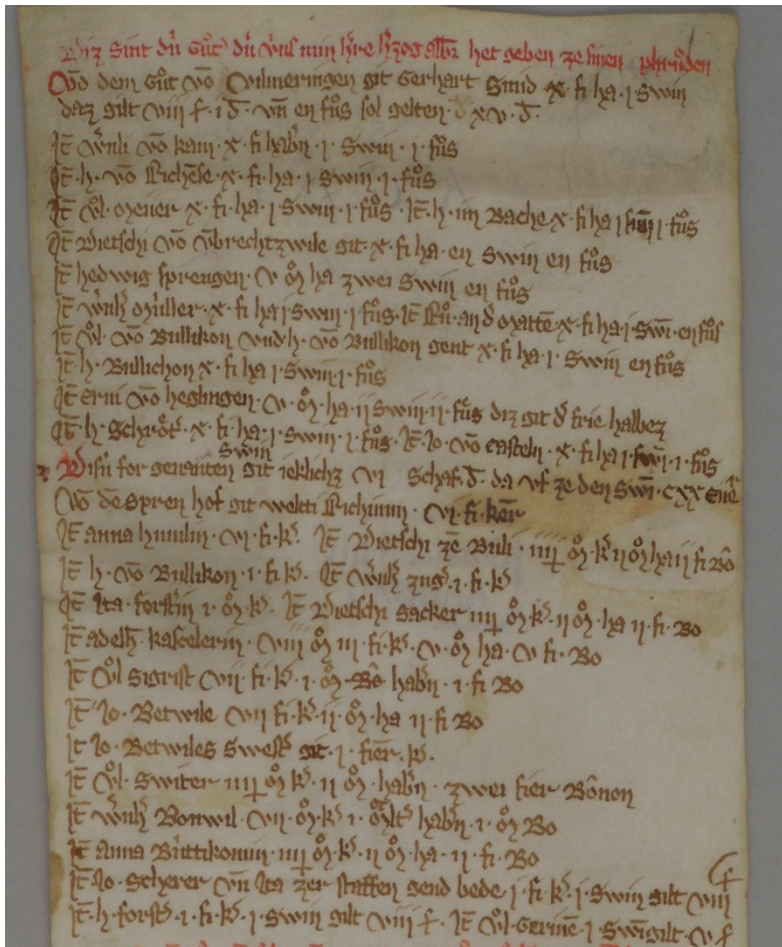 Diz sint dú Gůt dú úns min h̄re h̄zog alb̄r het geben ze sinen phrůnden
Vō dem Gůt vō Vilmeringen git Gerhart Smid x · fi ha · j swin
daz gilt viij ꝉ · i d · vn̄ en fůs sol gelten · xv · d ·
It̄ w̄nli vō kam · x · fi hab̄n · j · Swin · j · fůs
It̄ · h · vō Richēse · x · fi · ha · j swin · j · fůs
It̄ Ůl · meyer x · fi · ha · j swin · j · fůs · It̄ · h · im Bache · x · fi ha j swin j · fůs
It̄ Dietschi vō v̄brechtzwile git · x · fi ha · en swin en fůs
It̄ hedwig sprengen · v m̊ ha zwei Swin en fůs
It̄ w̄nh̄ Müller · x · fi ha j swin · j · fůs · It̄ Rů · an d̄ mattē · x · fi · ha · j · swī · en fůs
It̄ Ůl · vō Bullikon vnd · h · vō Bullikon gent x · fi ha · j · Swin en fůs
It̄ · h · Bullichon x · fi ha j Swin · j · fůs
It̄ erni vō heglingen · v · m̊ · ha · ij swin · ij · fůs diz git d̄ frie halbez
It̄ · h · Schrŏt̄ · x · fi · ha · j · swin · j · fůs · It̄ · Jo · vō casteln · x · fi ha j · swī · j · fůs
swin
Disú for genanten git ieklichz vj Schaf · d · da vf ze den swī · cxx
Vō dē spren hof git welti Richinun · vj · fi · kēr
It̄ anna hunlin · vj · fi · k̄ · It̄ Dietschi zē Bûli · iiij m̊ · k̄ ij m̊ ha ij fi Bô
It̄ h · vō Bullikon · j · fi · k̄ · It̄ w̄nh̄ zuḡ · j · fi · k̄
It̄ Ita · forst̄in j · m̊ · k̄ · It̄ Dietschi sacker iiij m̊ k̄ · ij m̊ · ha ij · fi · Bo
It̄ adelh̄ · kascelerin · viij m̊ iij · fi · k̄ · v · m̊ ha · v fi · Bo
It̄ Ůl Sigrist vij fi · k̄ · j · m̊ · Bô hab̄n · j · fi Bo
It̄ Jo · Betwile vij fi · k̄ · ij · m̊ · ha ij · fi Bo
It̄ Jo · Betwiles swest̄ git · j · fiēr · k̄ ·
It̄ Ůl · switer iiij m̊ k̄ · ij m̊ · hab̄n · zwei fier Bônon
It̄ w̄nh̄ Bonwil · vij · m̊ · k̄ j · m̊lt̄ hab̄n · j · m̊ Bo
It̄ anna Büttikonun · iiij m̊ · k̄ · ij m̊ · ha · ij · fi · Bo
It̄ Jo · Scherer vn̄ Ita zer staffen gend bede j · fi · k̄ · j · swin gilt viij ꝉ
It̄ · h · forst̄ · j · fi · k̄ · j · swin gilt viij · ꝉ · It̄ Ůl · Gerinē · j swī gilt · v ꝉ